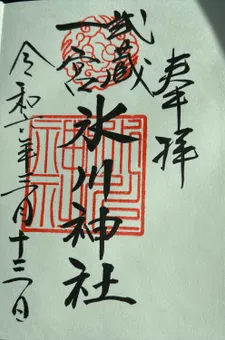 奉拝
武蔵
一宮
氷川神社
令和六年三月十二日